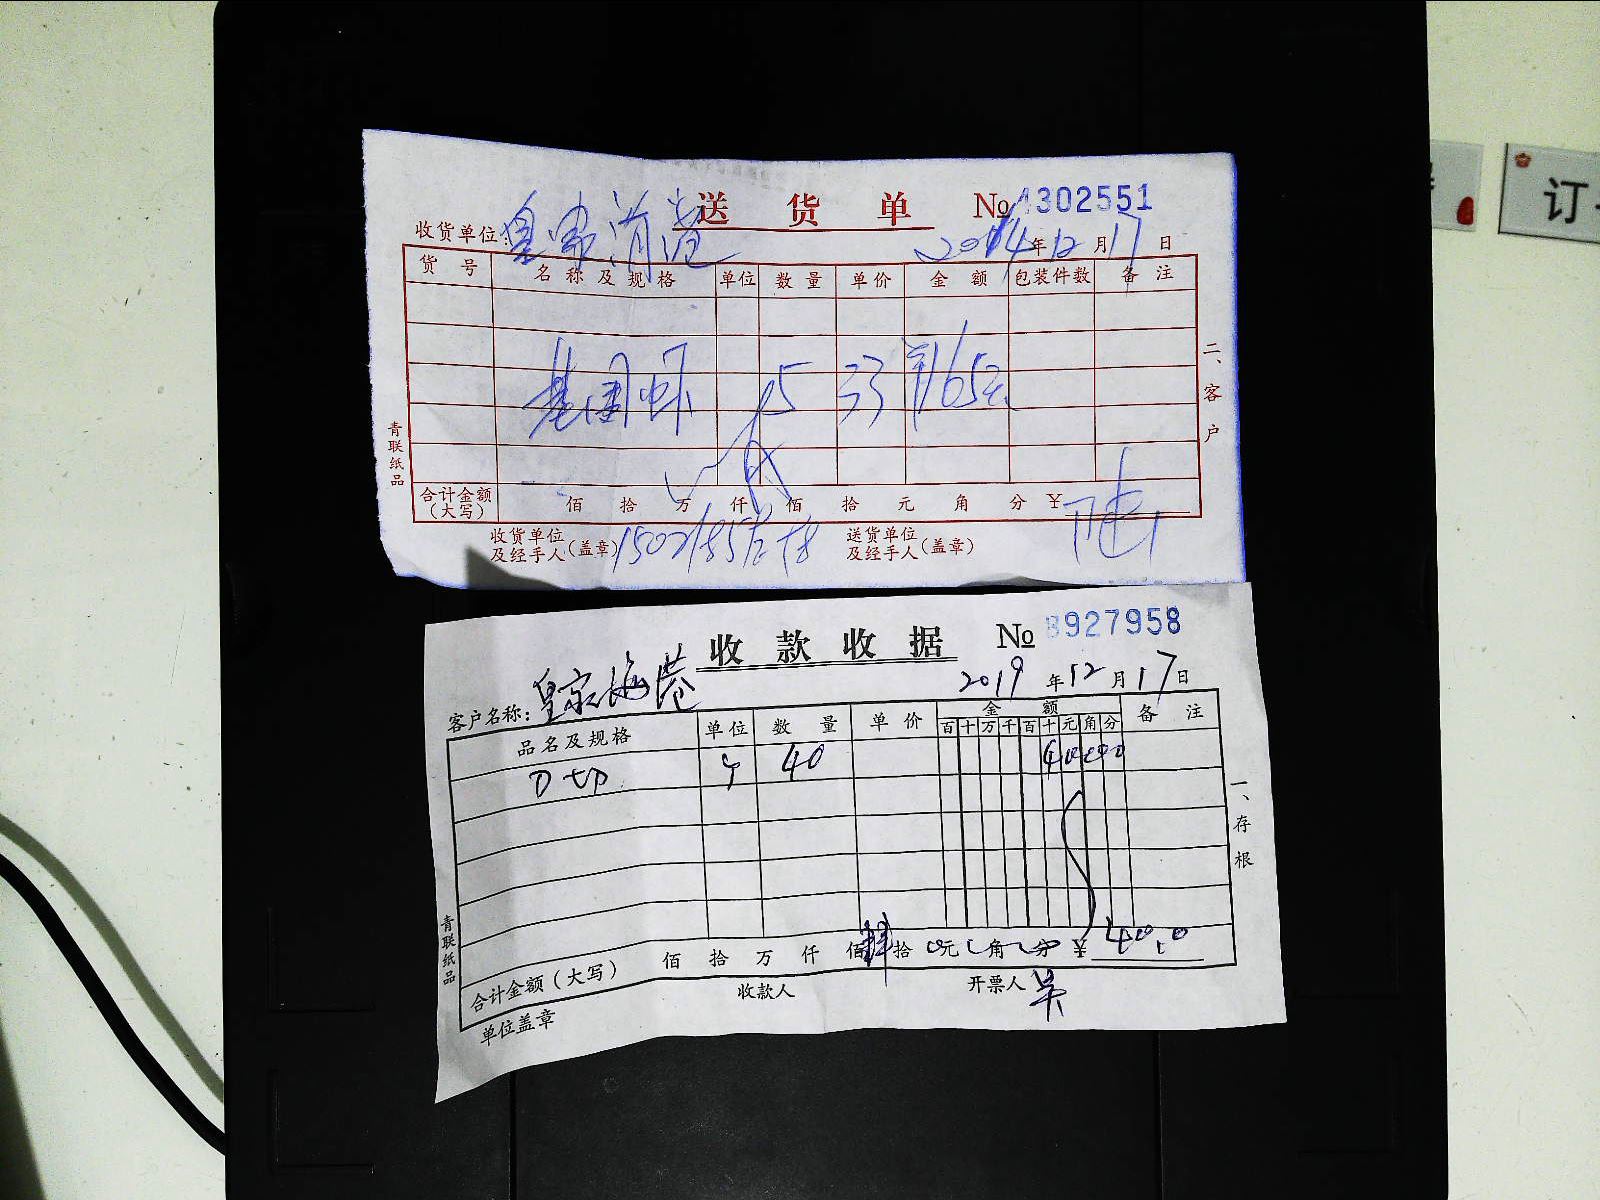 送货单 № 4302551
收货单位: 皇家海港 年12月17日
货号 名称及规格 单位 数量 单价 金额 包装件数 备注
基围虾 5 33 165元
合计金额(大写) 佰 拾 万 仟 佰 拾 元 角 分 ¥
收货单位及经手人(盖章) 送货单位及经手人(盖章)
二、客户
青联纸品
收款收据 № 8927958
2019年12月17日
客户名称: 皇家海港
品名及规格 单位 数量 单价 金额 备注
百 十 万 千 百 十 元 角 分
40 4000
合计金额(大写) 佰 拾 万 仟 佰 肆拾 0元 角 分 ¥ 40.0
单位盖章 收款人 开票人 吴
一、存根
青联纸品
订